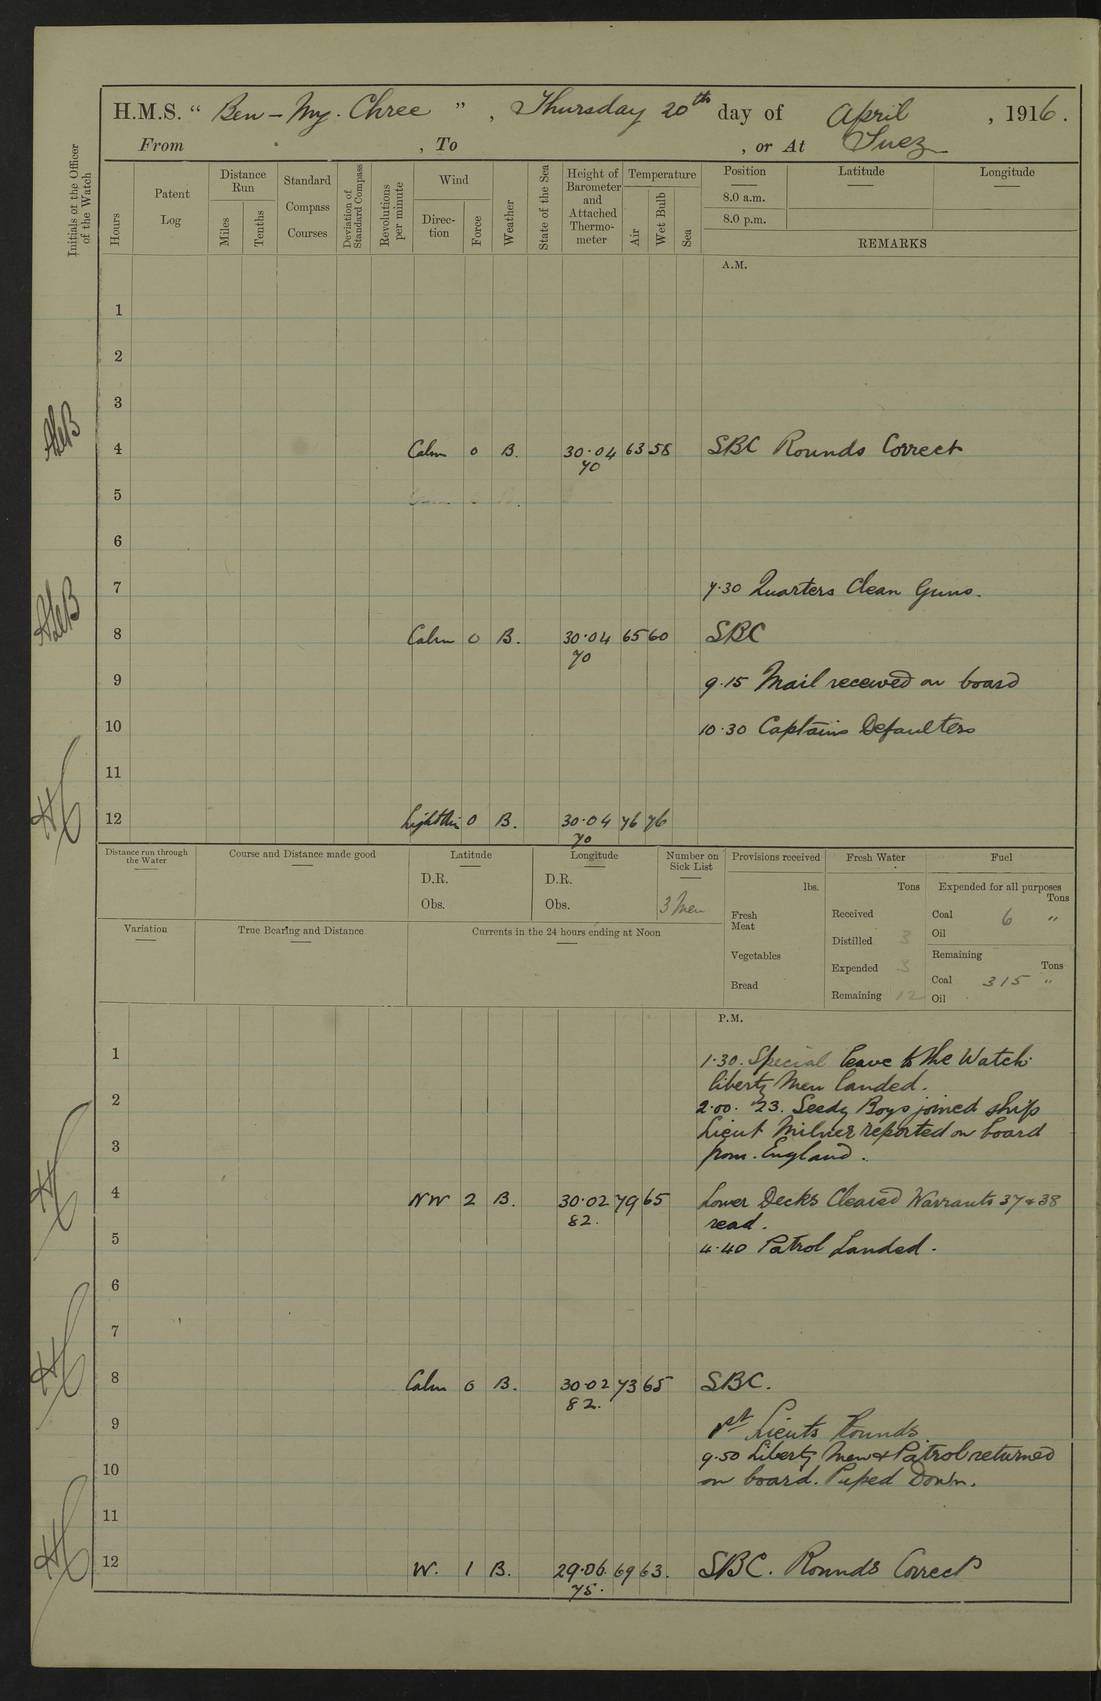 H.M.S. “ Ben-My-Chree ” , Thursday 20th day of April , 1916.
From , To , or At Suez
Initials of the Officer of the Watch
Hours
Patent Log
Distance Run
Miles
Tenths
Standard Compass Courses
Deviation of Standard Compass
Revolutions per minute
Wind
Direc-tion
Force
Weather
State of the Sea
Height of Barometer and Attached Thermo-meter
Temperature
Air
Wet Bulb
Sea
Position Latitude Longitude
8.0 a.m.
8.0 p.m.
REMARKS
A.M.
1
2
3
4 Calm 0 B. 30.04 63 58 SBC Rounds Correct
70
5
6
7 7.30 Quarters Clean Guns.
8 Calm 0 B. 30.04 65 60 SBC
70
9 9.15 Mail received on board
10 10.30 Captains Defaulters
11
12 0 B. 30.04 76 76
70
Distance run through the Water
Course and Distance made good
Latitude
D.R.
Obs.
Longitude
D.R.
Obs.
Number on Sick List
3 Men
Provisions received
lbs.
Fresh Meat
Vegetables
Bread
Fresh Water
Tons
Received
Distilled 3
Expended 3
Remaining 12
Fuel
Expended for all purposes
Tons
Coal 6 "
Oil
Remaining
Tons
Coal 315 "
Oil
Variation
True Bearing and Distance
Currents in the 24 hours ending at Noon
P.M.
1 1.30. Special leave to the Watch.
liberty Men landed.
2 2.00. 23. Seedy Boys joined ship
Lieut Milner reported on board
3 from England.
4 NW 2 B. 30.02 79 65 Lower Decks Cleared Warrants 37 & 38
82. read.
5 4.40 Patrol Landed.
6
7
8 Calm 0 B. 30.02 73 65 SBC.
82.
9 1st Lieuts Rounds
9.50 Liberty Men & Patrol returned
10 on board. Piped Down.
11
12 W. 1 B. 29.06 69 63. SBC. Rounds Correct
75.